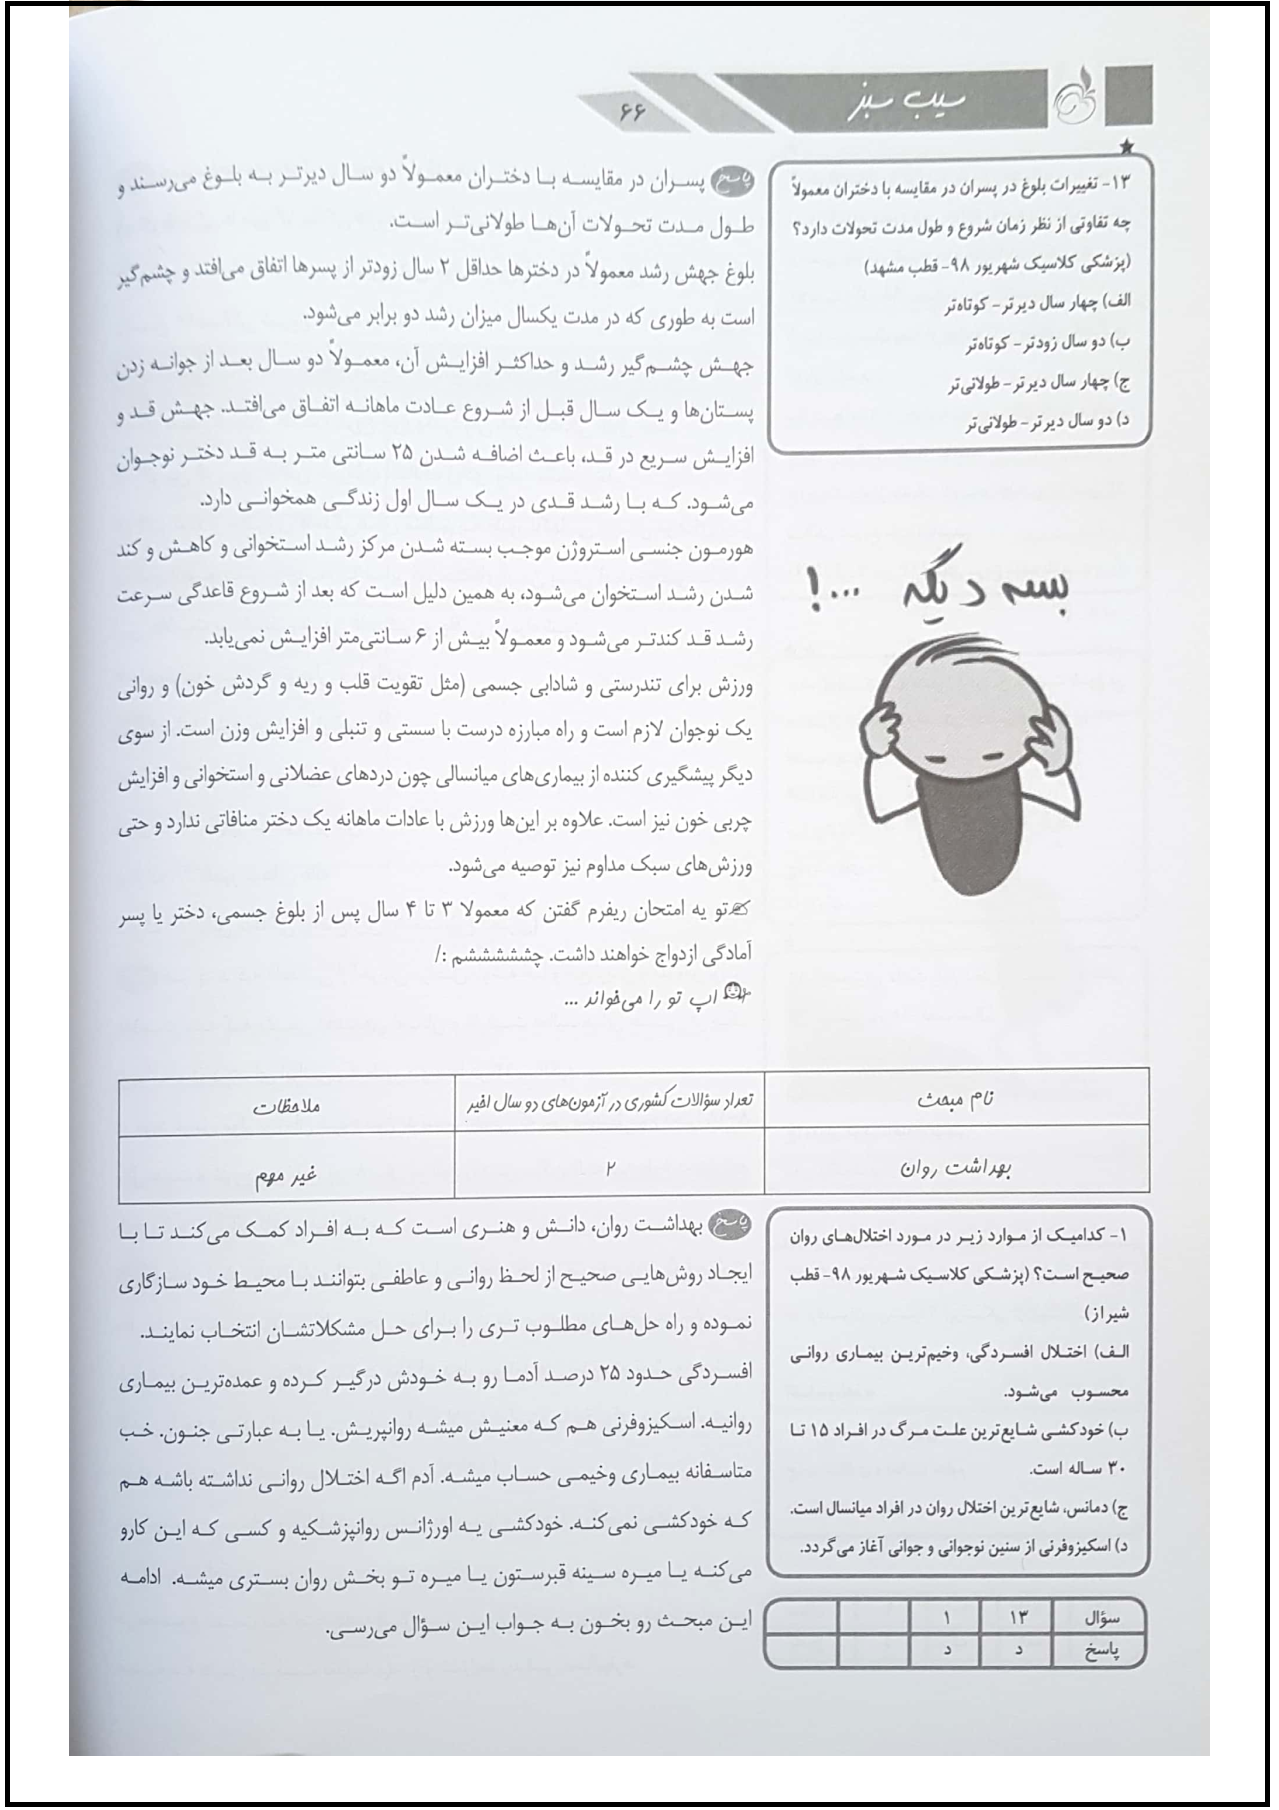 سیب سبز
۶۶
۱۳- تغییرات بلوغ در پسران در مقایسه با دختران معمولاً
چه تفاوتی از نظر زمان شروع و طول مدت تحولات دارد؟
(پزشکی کلاسیک شهریور ۹۸- قطب مشهد)
الف) چهار سال دیرتر- کوتاه‌تر
ب) دو سال زودتر- کوتاه‌تر
ج) چهار سال دیرتر- طولانی‌تر
د) دو سال دیرتر- طولانی‌تر
بسه دیگه ...!
پاسخ پسران در مقایسه با دختران معمولاً دو سال دیرتر به بلوغ می‌رسند و
طول مدت تحولات آن‌ها طولانی‌تر است.
بلوغ جهش رشد معمولاً در دخترها حداقل ۲ سال زودتر از پسرها اتفاق می‌افتد و چشم‌گیر
است به طوری که در مدت یکسال میزان رشد دو برابر می‌شود.
جهش چشم‌گیر رشد و حداکثر افزایش آن، معمولاً دو سال بعد از جوانه زدن
پستان‌ها و یک سال قبل از شروع عادت ماهانه اتفاق می‌افتد. جهش قد و
افزایش سریع در قد، باعث اضافه شدن ۲۵ سانتی متر به قد دختر نوجوان
می‌شود. که با رشد قدی در یک سال اول زندگی همخوانی دارد.
هورمون جنسی استروژن موجب بسته شدن مرکز رشد استخوانی و کاهش و کند
شدن رشد استخوان می‌شود، به همین دلیل است که بعد از شروع قاعدگی سرعت
رشد قد کندتر می‌شود و معمولاً بیش از ۶ سانتی‌متر افزایش نمی‌یابد.
ورزش برای تندرستی و شادابی جسمی (مثل تقویت قلب و ریه و گردش خون) و روانی
یک نوجوان لازم است و راه مبارزه درست با سستی و تنبلی و افزایش وزن است. از سوی
دیگر پیشگیری کننده از بیماری‌های میانسالی چون دردهای عضلانی و استخوانی و افزایش
چربی خون نیز است. علاوه بر این‌ها ورزش با عادات ماهانه یک دختر منافاتی ندارد و حتی
ورزش‌های سبک مداوم نیز توصیه می‌شود.
تو یه امتحان ریفرم گفتن که معمولا ۳ تا ۴ سال پس از بلوغ جسمی، دختر یا پسر
آمادگی ازدواج خواهند داشت. چشششششم :/
اپ تو را می‌خواند ...
نام مبحث	تعداد سؤالات کشوری در آزمون‌های دو سال اخیر	ملاحظات
بهداشت روان	۲	غیر مهم
۱- کدامیک از موارد زیر در مورد اختلال‌های روان
صحیح است؟ (پزشکی کلاسیک شهریور ۹۸- قطب
شیراز)
الف) اختلال افسردگی، وخیم‌ترین بیماری روانی
محسوب می‌شود.
ب) خودکشی شایع‌ترین علت مرگ در افراد ۱۵ تا
۳۰ ساله است.
ج) دمانس، شایع‌ترین اختلال روان در افراد میانسال است.
د) اسکیزوفرنی از سنین نوجوانی و جوانی آغاز می‌گردد.
پاسخ بهداشت روان، دانش و هنری است که به افراد کمک می‌کند تا با
ایجاد روش‌هایی صحیح از لحظ روانی و عاطفی بتوانند با محیط خود سازگاری
نموده و راه حل‌های مطلوب تری را برای حل مشکلاتشان انتخاب نمایند.
افسردگی حدود ۲۵ درصد آدما رو به خودش درگیر کرده و عمده‌ترین بیماری
روانیه. اسکیزوفرنی هم که معنیش میشه روانپریش. یا به عبارتی جنون. خب
متاسفانه بیماری وخیمی حساب میشه. آدم اگه اختلال روانی نداشته باشه هم
که خودکشی نمی‌کنه. خودکشی یه اورژانس روانپزشکیه و کسی که این کارو
می‌کنه یا میره سینه قبرستون یا میره تو بخش روان بستری میشه. ادامه
این مبحث رو بخون به جواب این سؤال می‌رسی.
سؤال	۱۳	۱
پاسخ	د	د